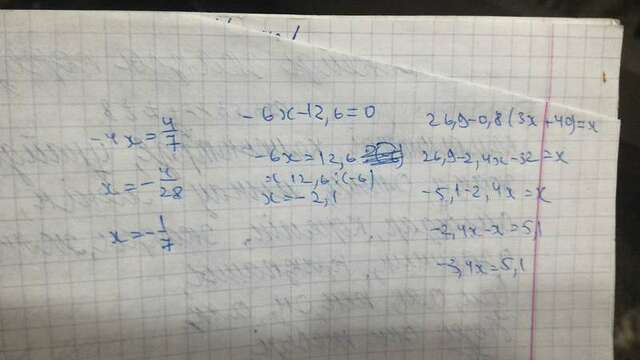 -4x=4/7
x=-4/28
x=-1/7
-6x-12,6=0
-6x=12,6
x=12,6:(-6)
x=-2,1
26,9-0,8(3x+40)=x
26,9-2,4x-32=x
-5,1-2,4x=x
-2,4x-x=5,1
-3,4x=5,1